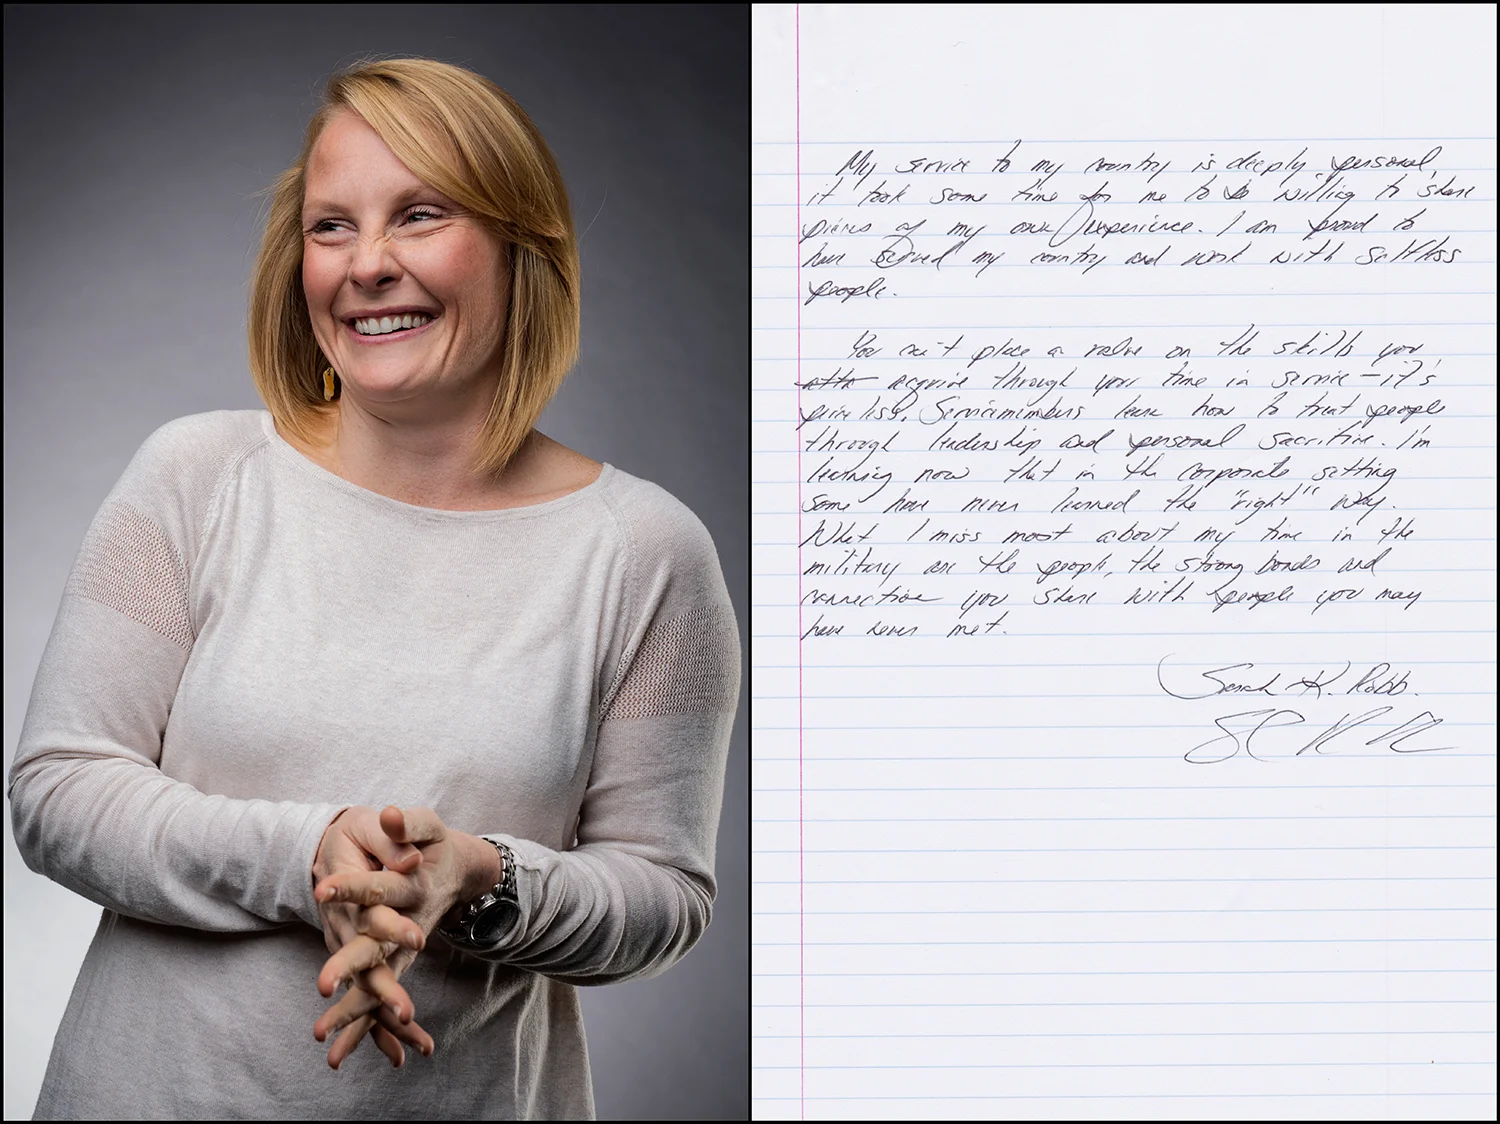 My service to my country is deeply personal,
it took some time for me to be willing to share
pieces of my own experience. I am proud to
have served my country and work with selfless
people.
You can't place a value on the skills you
acquire through your time in service – it's
priceless. Servicemembers learn how to treat people
through leadership and personal sacrifice. I'm
learning now that in the corporate setting
some have never learned the "right" way.
What I miss most about my time in the
military are the people, the strong bonds and
connection you share with people you may
have never met.
Sarah K. Robb.